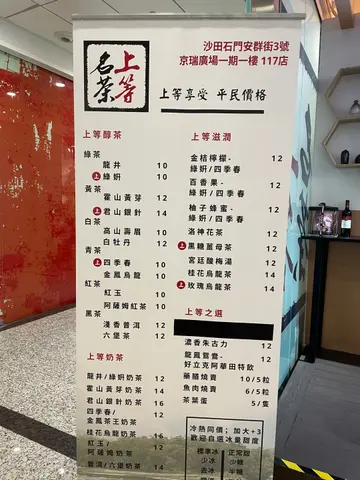 沙田石門安群街3號
京瑞廣場一期一樓 117店
上等
名茶
上等享受 平民價格
上等醇茶
綠茶
龍井 10
上 綠妍 10
黃茶
霍山黃芽 12
上 君山銀針 14
白茶
高山壽眉 10
白牡丹 12
青茶
上 四季春 10
金鳳烏龍 12
紅茶
紅玉 10
阿薩姆紅茶 10
黑茶
淺香普洱 12
六堡茶 12
上等奶茶
龍井/綠妍奶茶 12
霍山黃芽奶茶 14
君山銀針奶茶 16
四季春/
金鳳茶王奶茶 14
桂花烏龍奶茶 16
紅玉/
阿薩姆奶茶 12
普洱/六堡奶茶 14
上等滋潤
金桔檸檬- 12
綠妍/四季春
百香果- 12
綠妍/四季春
柚子蜂蜜- 12
綠妍/四季春
洛神花茶 12
上 黑糖薑母茶 12
宮廷酸梅湯 12
桂花烏龍茶 14
上 玫瑰烏龍茶 14
上等之選
濃香朱古力 12
龍鳳鴛鴦- 14
好立克阿華田特飲
藥膳燒賣 10/5粒
魚肉燒賣 6/5粒
茶葉蛋 5/隻
冷熱同價; 加大+3
歡迎自選冰量甜度
標準冰 正常甜
少冰 少糖
去冰 半糖